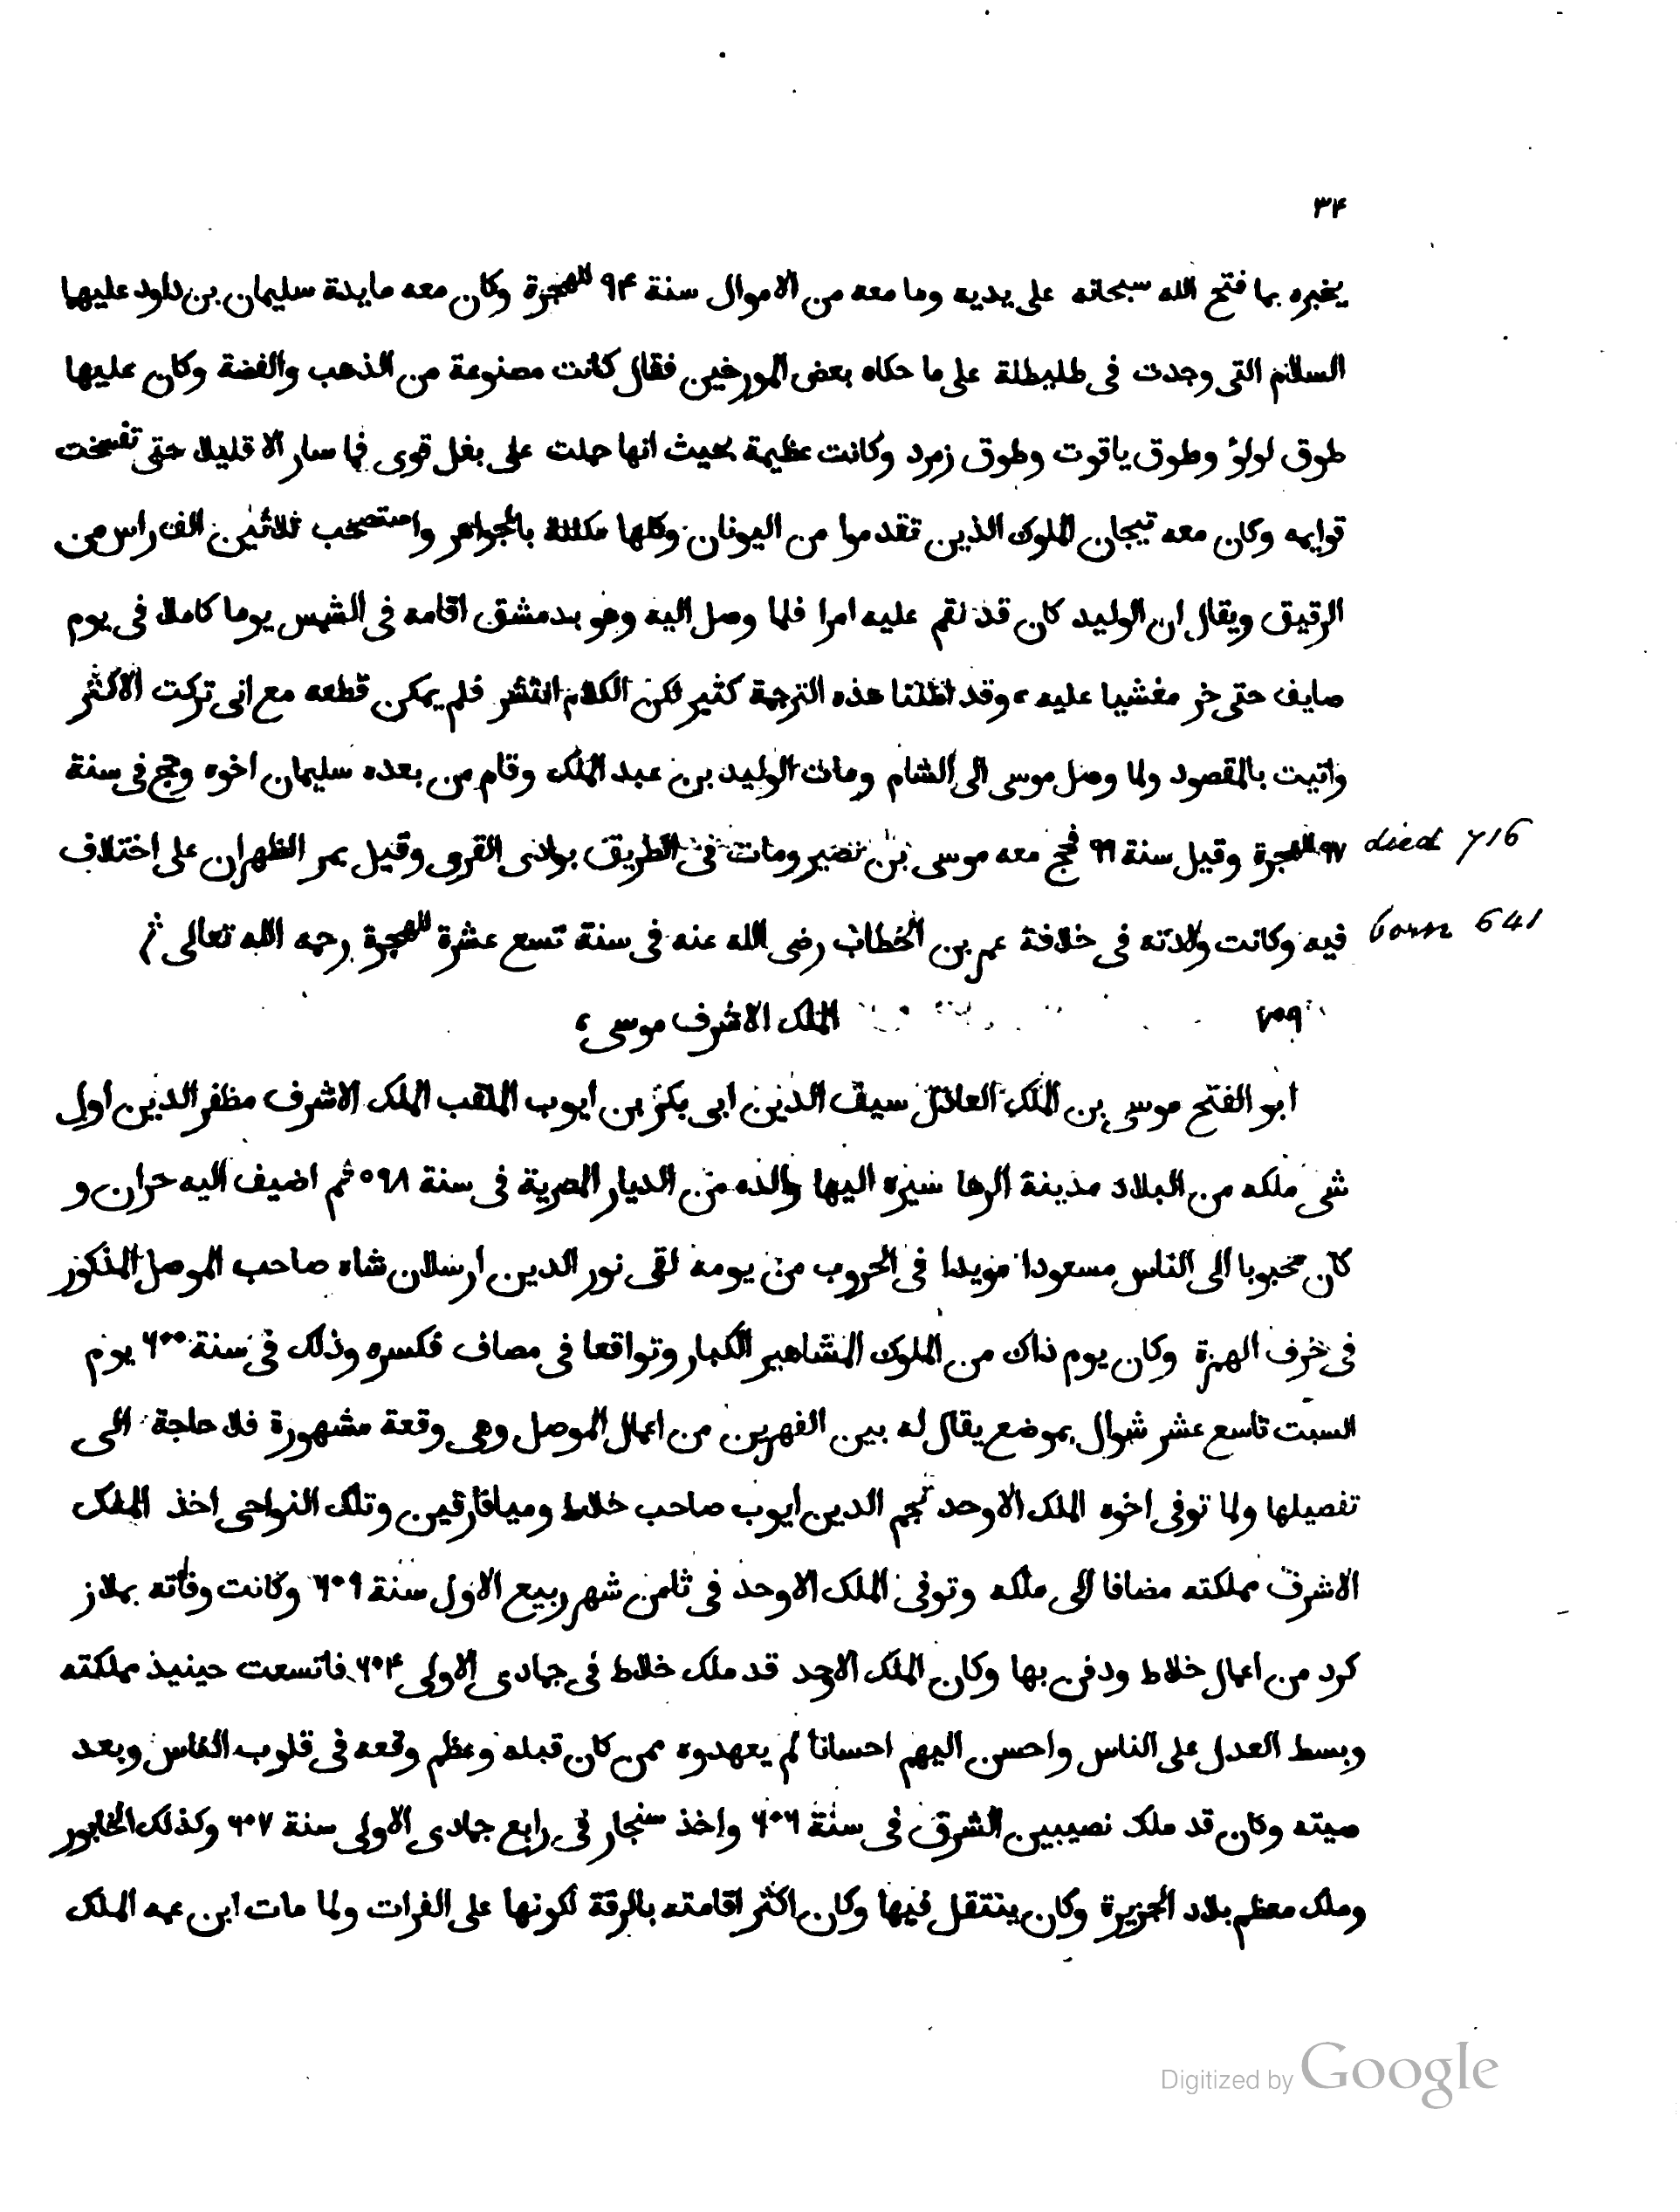 ٣۴
يخبره بما فتح الله سبحانه على يديه وما معه من الاموال سنة ٩۴ للهجرة وكان معه مايدة سليمان بن داود عليهما
السلام التى وجدت فى طليطلة على ما حكاه بعض المورخين فقال كانت مصنوعة من الذهب والفضة وكان عليها
طوق لولؤ وطوق ياقوت وطوق زمرد وكانت عظيمة بحيث انها حملت على بغل قوى فما سار الا قليلا حتى تفسخت
قوايمه وكان معه تيجان الملوك الذين تقدموا من اليونان وكلها مكللة بالجواهر واستصحب ثلاثين الف راس من
الرقيق ويقال ان الوليد كان قد نقم عليه امرا فلما وصل اليه وهو بدمشق اقامه فى الشمس يوما كاملا فى يوم
صايف حتى خر مغشيا عليه، وقد اطلنا هذه الترجمة كثير لكن الكلام انتشر فلم يمكن قطعه مع انى تركت الاكثر
واتيت بالمقصود ولما وصل موسى الى الشام ومات الوليد بن عبد الملك وقام من بعده سليمان اخوه وحج فى سنة
٩٧ للهجرة وقيل سنة ٩٩ فحج معه موسى بن نصير ومات فى الطريق بوادى القرى وقيل بمر الظهران على اختلاف died 716
فيه وكانت ولادته فى خلافة عمر بن الخطاب رضى الله عنه فى سنة تسع عشرة للهجرة رحمه الله تعالى born 641
٧٥٩ الملك الاشرف موسى،
ابو الفتح موسى بن الملك العادل سيف الدين ابى بكر بن ايوب الملقب الملك الاشرف مظفر الدين اول
شى ملكه من البلاد مدينة الرها سيره اليها والده من الديار المصرية فى سنة ٥٩٨ ثم اضيف اليه حران و
كان محبوبا الى الناس مسعودا مويدا فى الحروب من يومه لقى نور الدين ارسلان شاه صاحب الموصل المذكور
فى حرف الهمزة وكان يوم ذاك من الملوك المشاهير الكبار وتواقعا فى مصاف فكسره وذلك فى سنة ٦٠٠ يوم
السبت تاسع عشر شوال بموضع يقال له بين النهرين من اعمال الموصل وهى وقعة مشهورة فلا حاجة الى
تفصيلها ولما توفى اخوه الملك الاوحد نجم الدين ايوب صاحب خلاط وميافارقين وتلك النواحى اخذ الملك
الاشرف مملكته مضافا الى ملكه وتوفى الملك الاوحد فى ثامن شهر ربيع الاول سنة ٦٠٩ وكانت وفاته بملاز
كرد من اعمال خلاط ودفن بها وكان الملك الاوحد قد ملك خلاط فى جمادى الاولى ٦٠۴ فاتسعت حينيذ مملكته
وبسط العدل على الناس واحسن اليهم احسانا لم يعهدوه ممن كان قبله وعظم وقعه فى قلوب الناس وبعد
صيته وكان قد ملك نصيبين الشرق فى سنة ٦٠٦ واخذ سنجار فى رابع جمادى الاولى سنة ٦٠٧ وكذلك الخابور
وملك معظم بلاد الجزيرة وكان ينتقل فيها وكان اكثر اقامته بالرقة لكونها على الفرات ولما مات ابن عمه الملك
Digitized by Google